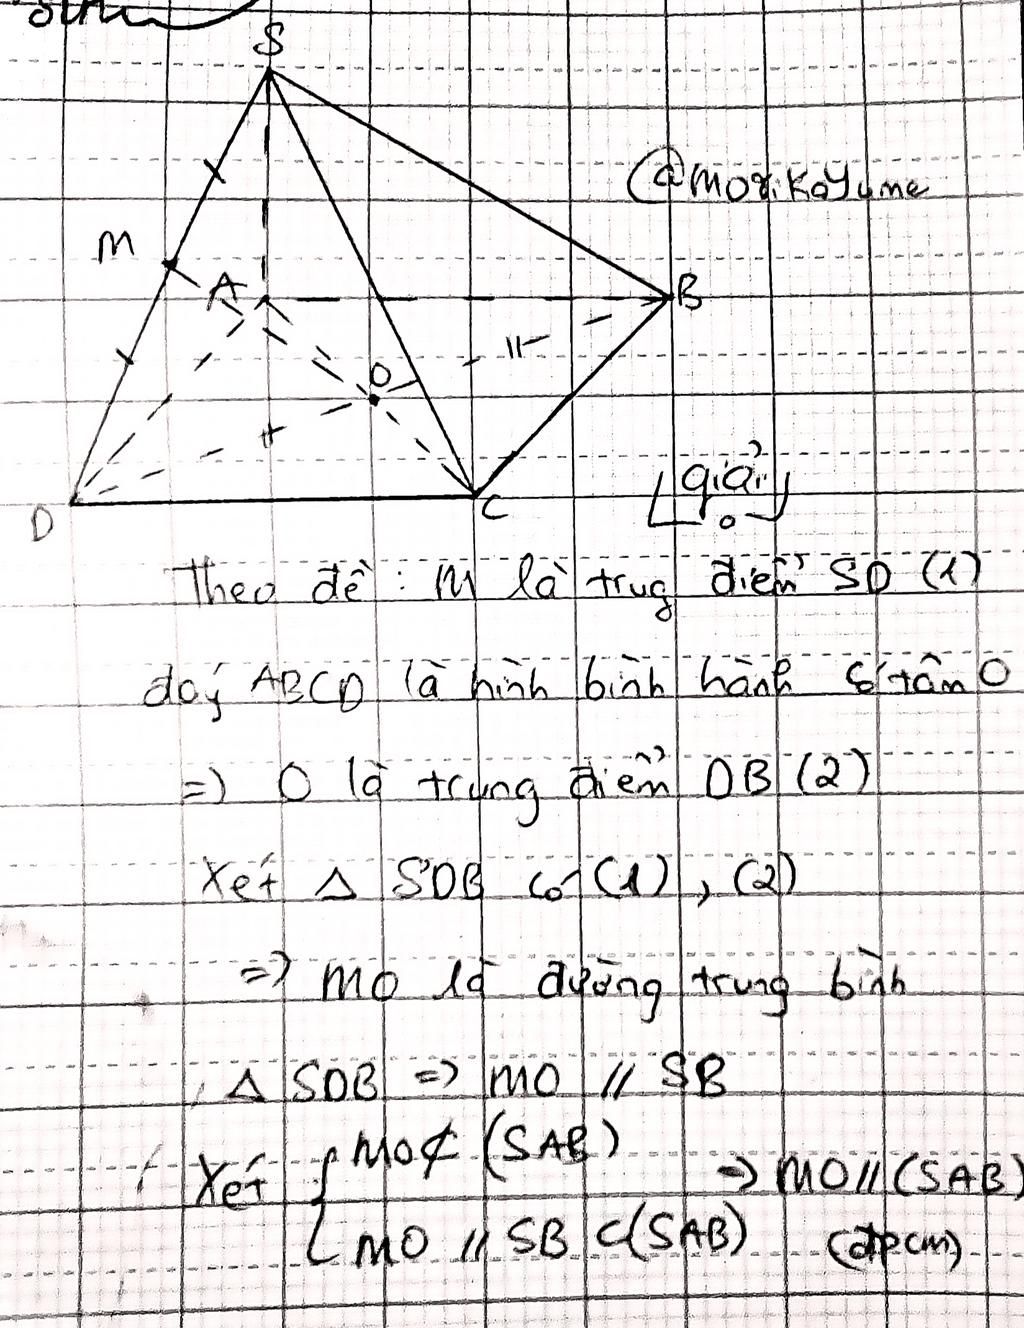 S
@morikayume
M
A
B
O
D
C
giải
Theo đề : M là trug điểm SD (1)
đáy ABCD là hình bình hành có tâm O
=> O là trung điểm DB (2)
Xét Δ SDB có (1), (2)
=> MO là đường trung bình
Δ SDB => MO // SB
Xét { MO ⊄ (SAB)
MO // SB ⊂ (SAB) => MO // (SAB)
(đpcm)